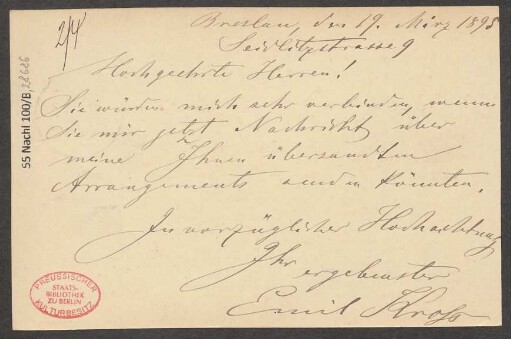 2/4
Breslau, den 19. März 1895
Seidlitzstrasse 9
Hochgeehrte Herren!
Sie würden mich sehr verbinden, wenn
Sie mir jetzt Nachricht über
meine Ihnen übersandten
Arrangements senden könnten.
In vorzüglicher Hochachtung
Ihr ergebenster
Emil Kross
55 Nachl 100/B,
PREUSSISCHER
STAATS-
BIBLIOTHEK
ZU BERLIN
KULTURBESITZ